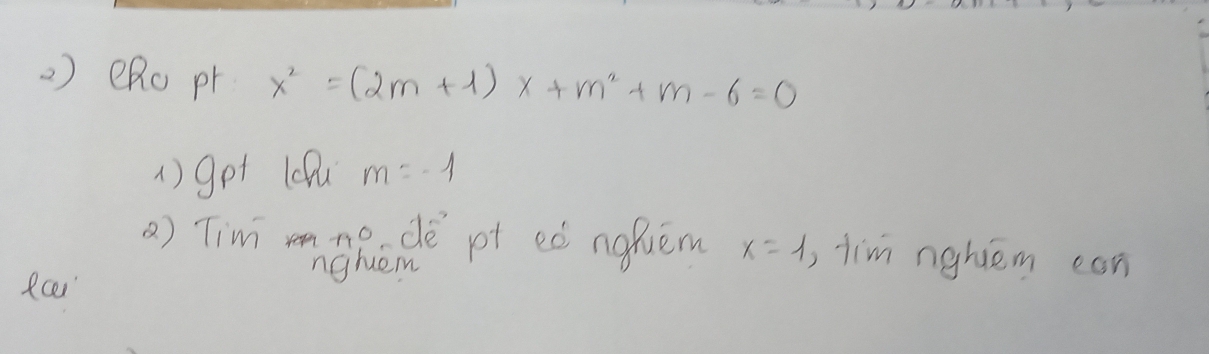 2) Cho pt x² = (2m + 1) x + m² + m - 6 = 0
1) gpt khi m = -1
2) Tìm no để pt có nghiệm x = 1, tìm nghiệm còn
nghiệm
lại